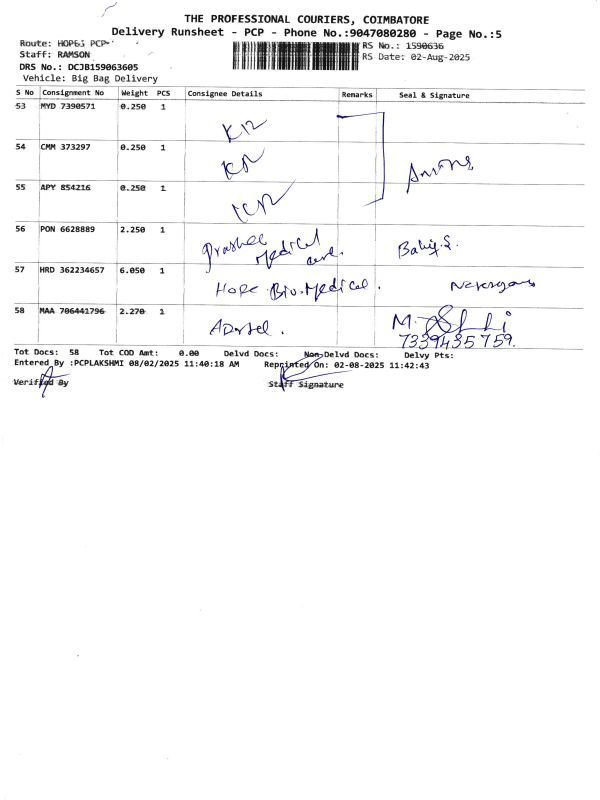 THE PROFESSIONAL COURIERS, COIMBATORE
Delivery Runsheet - PCP - Phone No.:9047080280 - Page No.:5
Route: HOPES PCP-
RS No.: 1590636
Staff: RAMSON
RS Date: 02-Aug-2025
DRS No.: DCJB159063605
Vehicle: Big Bag Delivery
S No Consignment No Weight PCS Consignee Details Remarks Seal & Signature
53 MYD 7390571 0.250 1
54 CMM 373297 0.250 1
55 APY 854216 0.250 1
56 PON 6628889 2.250 1 Medical
57 HRD 362234657 6.050 1 Hope Bio.Medical.
58 MAA 706441796 2.270 1
7339435759.
Tot Docs: 58 Tot COD Amt: 0.00 Delvd Docs: Non-Delvd Docs: Delvy Pts:
Entered By :PCPLAKSHMI 08/02/2025 11:40:18 AM Reprinted On: 02-08-2025 11:42:43
Verified By Staff Signature